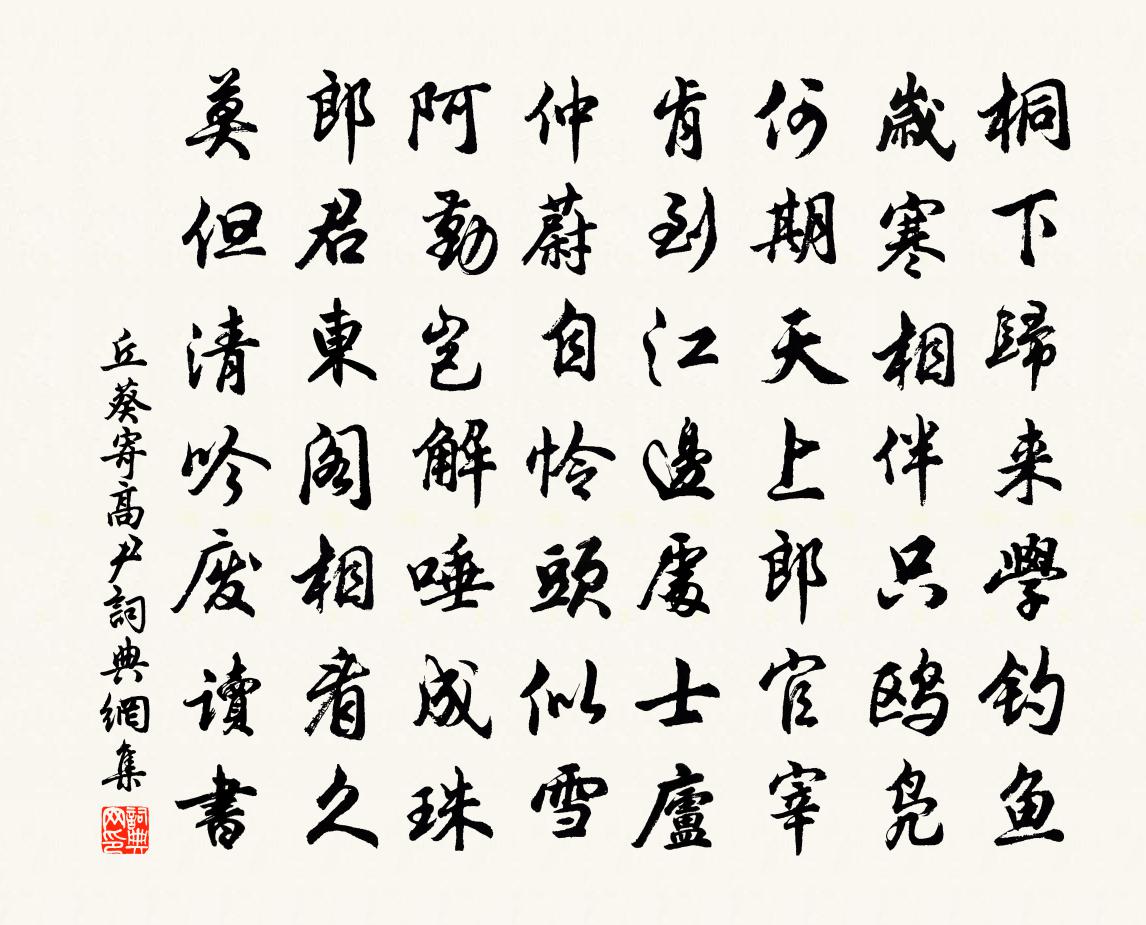 桐下歸来學釣魚
歲寒相伴只鷗凫
何期天上郎官宰
肯到江邊處士廬
仲蔚自憐頭似雪
阿勤豈解唾成珠
郎君東阁相看久
莫但清吟廢讀書
丘葵寄高尹詞典網集
詞典网印